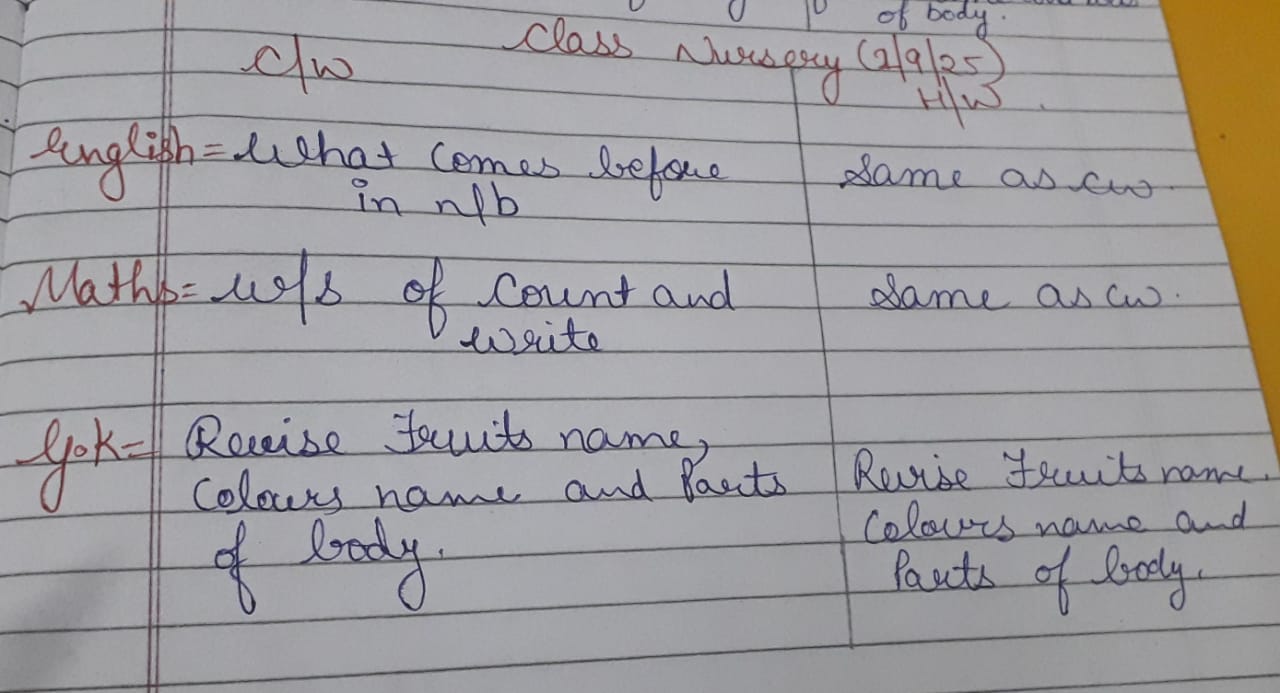 of body.
Class Nursery (2/9/25)
C/W
H/W.
English = What comes before
in n/b
Same as cw.
Maths = w/s of Count and
write
Same as cw.
G.K = Revise Fruits name,
Colours name and Parts
of body.
Revise Fruits name.
Colours name and
Parts of body.